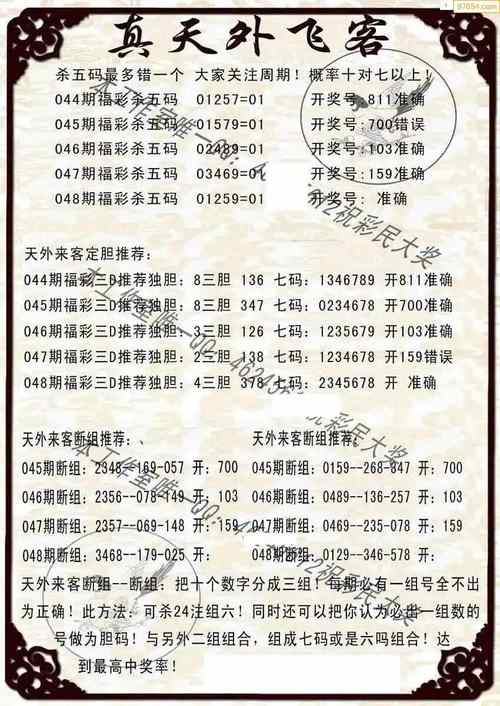 97654.com
真天外飞客
杀五码最多错一个 大家关注周期！概率十对七以上！
044期福彩杀五码 01257=01 开奖号:811准确
045期福彩杀五码 01579=01 开奖号:700错误
046期福彩杀五码 02489=01 开奖号:103准确
047期福彩杀五码 03469=01 开奖号:159准确
048期福彩杀五码 01259=01 开奖号: 准确
天外来客定胆推荐:
044期福彩三D推荐独胆: 8三胆 136 七码: 1346789 开811准确
045期福彩三D推荐独胆: 8三胆 347 七码: 0234678 开700准确
046期福彩三D推荐独胆: 3三胆 126 七码: 1235679 开103准确
047期福彩三D推荐独胆: 2三胆 138 七码: 1234678 开159错误
048期福彩三D推荐独胆: 4三胆 378 七码: 2345678 开 准确
天外来客断组推荐: 、
045期断组: 2348--169-057 开: 700
046期断组: 2356--078-149 开: 103
047期断组: 2357--069-148 开: 159
048期断组: 3468--179-025 开:
天外来客断组推荐:
045期断组: 0159--268-347 开: 700
046期断组: 0489--136-257 开: 103
047期断组: 0469--235-078 开: 159
048期断组: 0129--346-578 开:
天外来客断组--断组: 把十个数字分成三组！每期必有一组号全不出
为正确！此方法: 可杀24注组六！同时还可以把你认为必出一组数的
号做为胆码！与另外二组组合, 组成七码或是六吗组合！达
到最高中奖率！